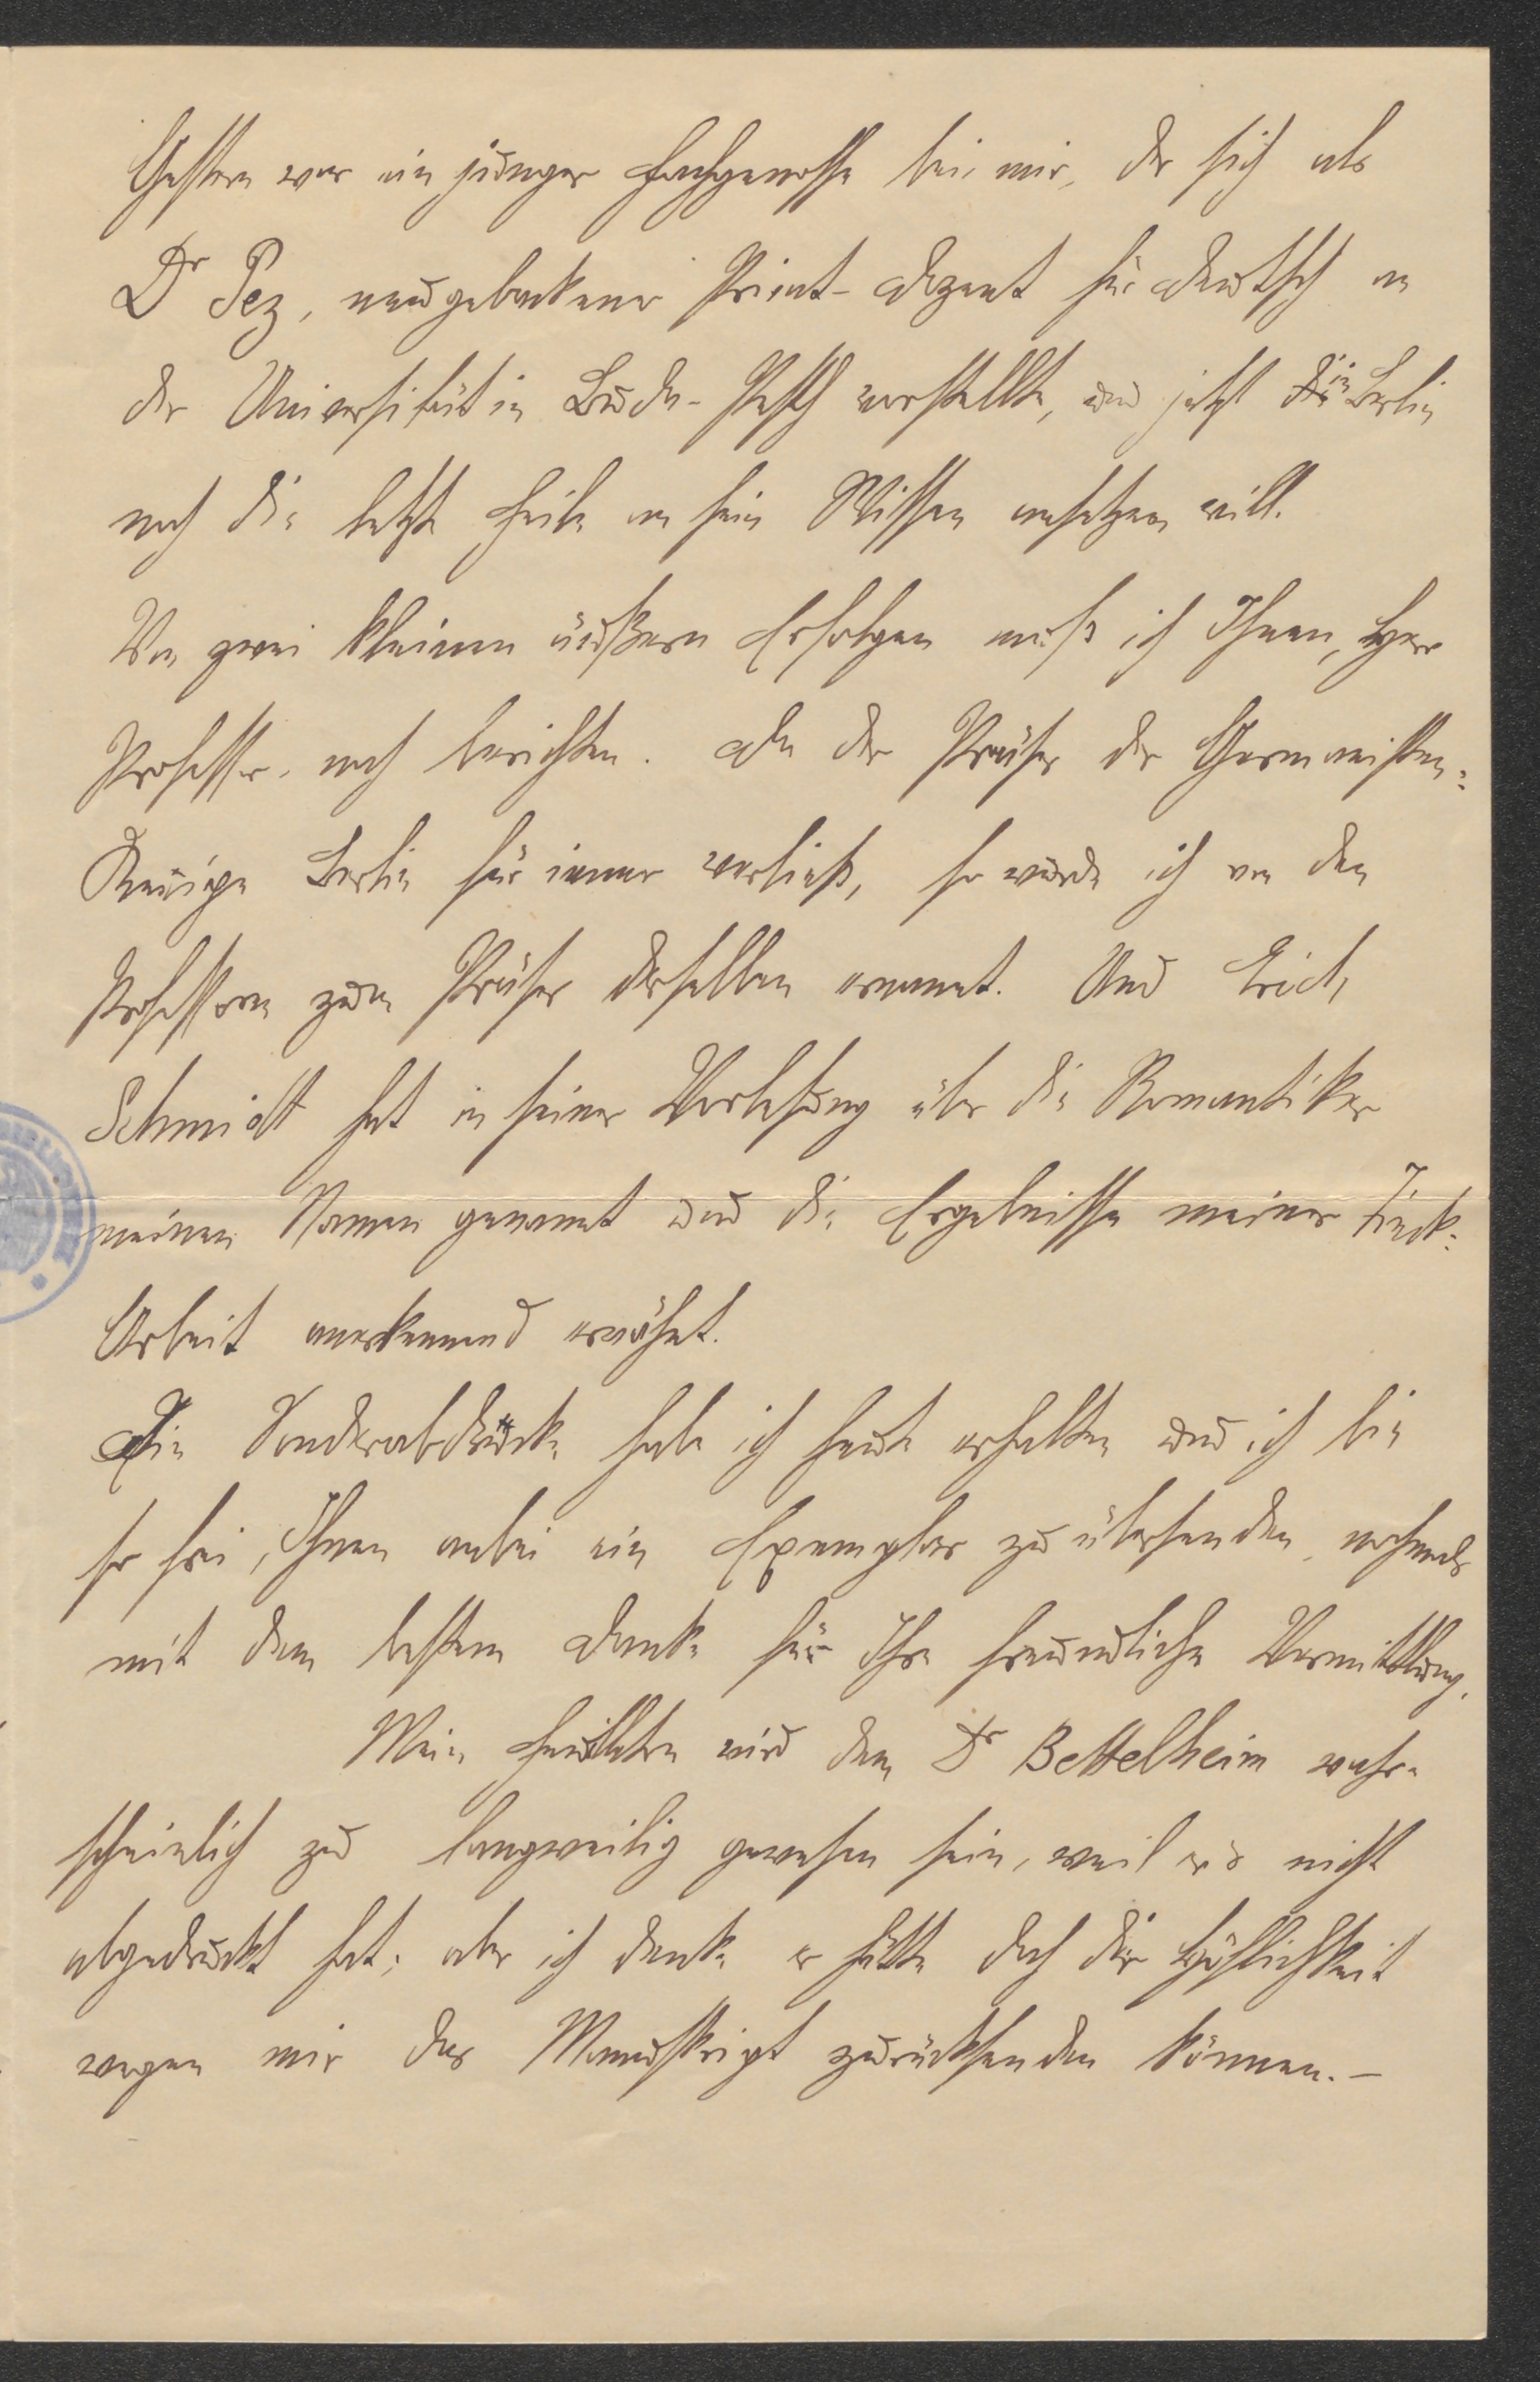 Gestern war ein junger Fachgenosse bei mir, der sich als
Dr Pez, neugebackener Privat-Dozent für Deutsch an
der Universität in Buda-Pesth vorstellte, und jetzt in Berlin
noch die letzte Feile an sein Wissen ansetzen will.
Von zwei kleinen äußern Erfolgen muß ich Ihnen, Herr
Professor, noch berichten. Da der Präses der Germanisten-
Kneipe Berlin für immer verließ, so wurde ich von den
Professoren zum Präses derselben ernannt. Und Erich
Schmidt hat in seiner Vorlesung über die Romantiker
meinen Namen genannt und die Ergebnisse meiner Tieck-
Arbeit anerkennend erwähnt.
Die Sonderabdrücke habe ich heute erhalten und ich bin
so frei, Ihnen anbei ein Exemplar zu übersenden, nochmals
mit dem bestem Danke für Ihre freundliche Vermittlung.
Mein Feuilleton wird dem Dr Bettelheim wahr-
scheinlich zu langweilig gewesen sein, weil er's nicht
abgedruckt hat; aber ich denke er hätte doch der Höflichkeit
wegen mir das Manuskript zurücksenden können.—